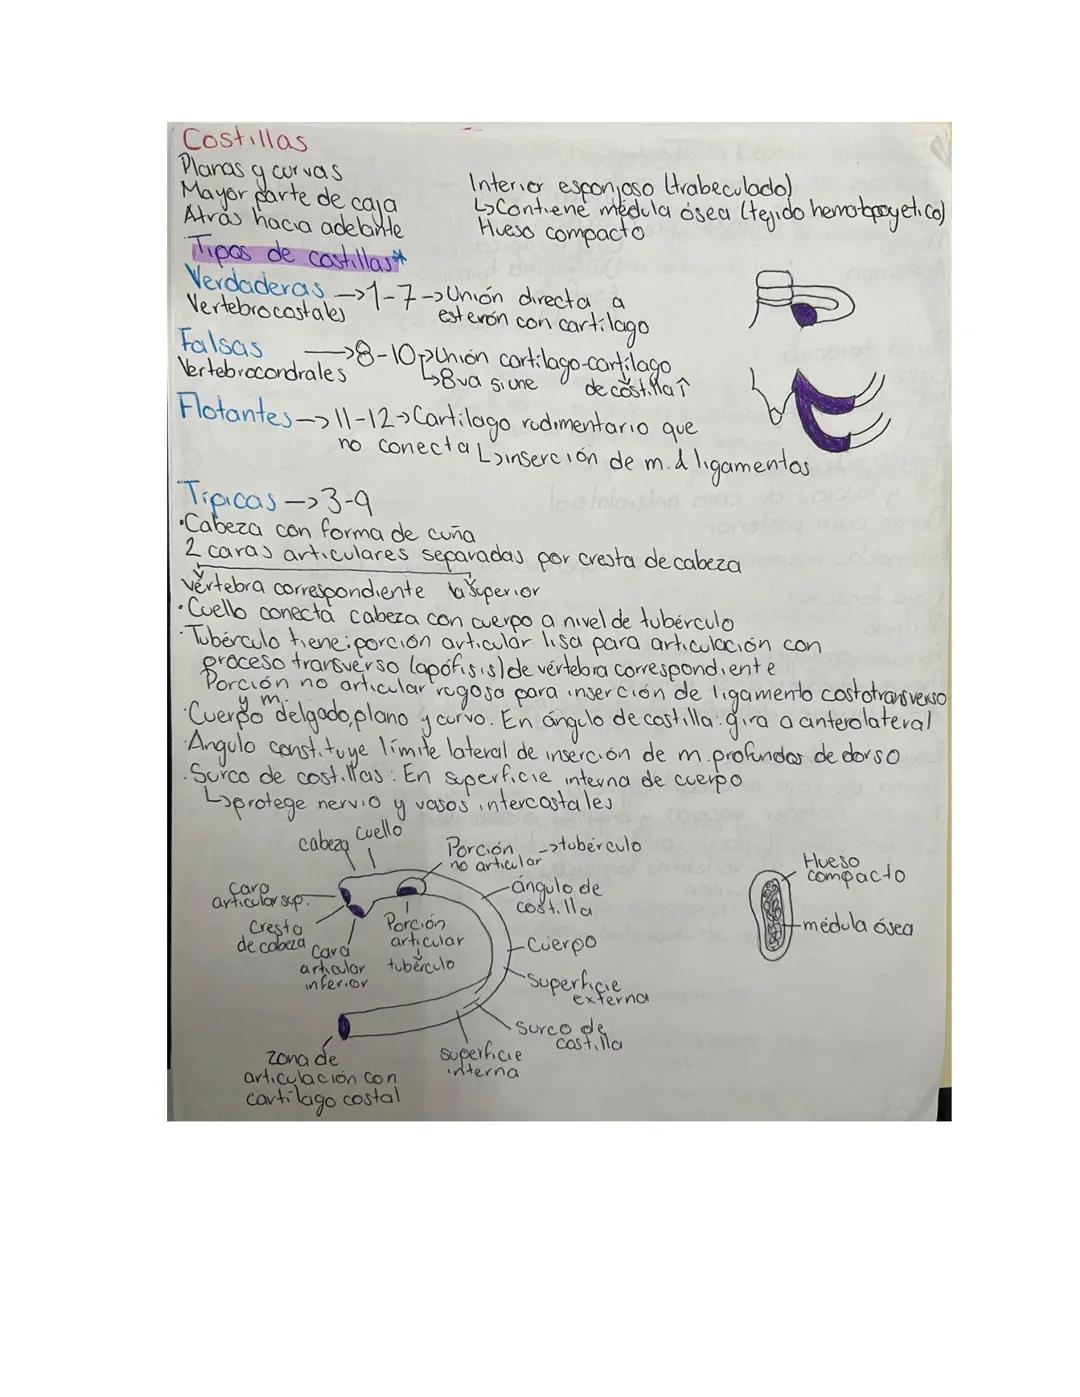 Costillas
Planas y curvas
Mayor parte de caja
Atrás hacia adelante
Interior esponjoso (trabeculado)
↳Contiene médula ósea (tejido hematopoyetico)
Hueso compacto
Tipos de costillas*
Verdaderas →1-7→Unión directa a
Vertebrocostales esternón con cartílago
Falsas →8-10→Unión cartilago-cartílago
Vertebrocondrales ↳8va siune de costilla↑
Flotantes→11-12→Cartílago rudimentario que
no conecta ↳inserción de m. d ligamentos
Típicas→3-9
·Cabeza con forma de cuña
2 caras articulares separadas por cresta de cabeza
vértebra correspondiente la superior
·Cuello conecta cabeza con cuerpo a nivel de tubérculo
·Tubérculo tiene: porción articular lisa para articulación con
proceso transverso (apófisis) de vértebra correspondiente
Porción no articular rugosa para inserción de ligamento costotransverso
y m.
·Cuerpo delgado, plano y curvo. En ángulo de costilla: gira a anterolateral
·Angulo constituye límite lateral de inserción de m. profundos de dorso
·Surco de costillas: En superficie interna de cuerpo
↳protege nervio y vasos intercostales
cabeza
Cuello
Porción no articular →tubérculo
cara articular sup.
Cresta de cabeza
Cara articular inferior
Porción articular
↓
tubérculo
ángulo de costilla
Cuerpo
Superficie externa
Surco de costilla
superficie interna
zona de articulación con cartílago costal
Hueso compacto
médula ósea